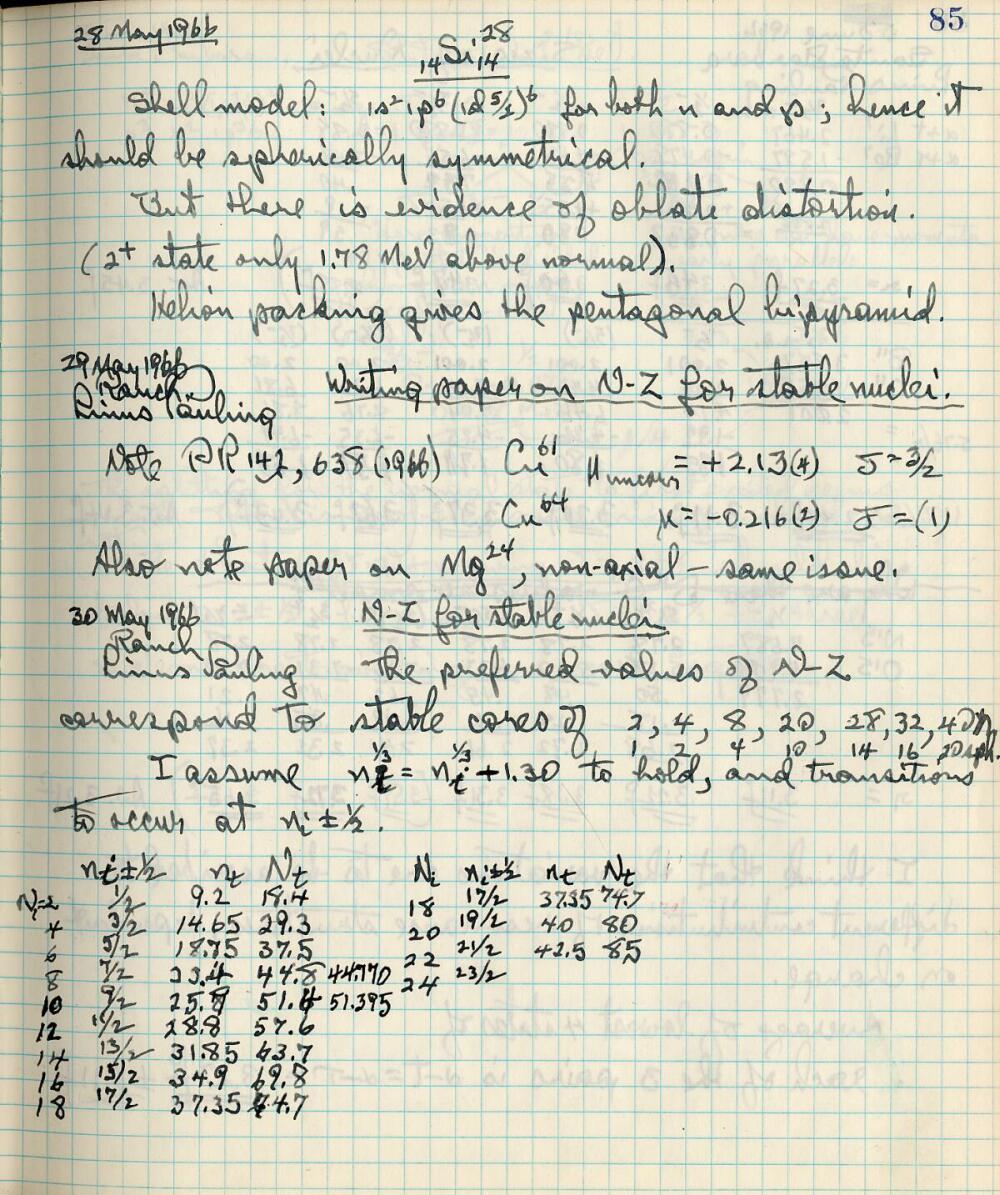 85
28 May 1966
₁₄Si₁₄²⁸
Shell model: 1s² 1p⁶ (1d 5/2)⁶ for both n and p; hence it
should be spherically symmetrical.
But there is evidence of oblate distortion.
(2⁺ state only 1.78 MeV above normal).
Helion packing gives the pentagonal bipyramid.
29 May 1966
Ranch
Linus Pauling
Writing paper on N-Z for stable nuclei.
Note PR 142, 638 (1966) Cu⁶¹ μ uncorr = +2.13(4) J = 3/2
Cu⁶⁴ μ = -0.216(2) J = (1)
Also note paper on Mg²⁴, non-axial – same issue.
30 May 1966
Ranch
Linus Pauling
N-Z for stable nuclei
The preferred values of N-Z
correspond to stable cores of 2, 4, 8, 20, 28, 32, 40 n
1 2 4 10 14 16 20 sph.
I assume n_t^1/3 = n_i^1/3 + 1.30 to hold, and transitions
to occur at n_i ± ½.
n_i ± ½ n_t N_t N_i n_i ± ½ n_t N_t
N_i = 2 1/2 9.2 18.4 18 17/2 37.35 74.7
4 3/2 14.65 29.3 20 19/2 40 80
6 5/2 18.75 37.5 22 21/2 42.5 85
8 7/2 44.8 44.770 24 23/2
10 9/2 51.4 51.395
12 11/2 28.8 57.6
14 13/2 31.85 63.7
16 15/2 34.9 69.8
18 17/2 37.35 74.7